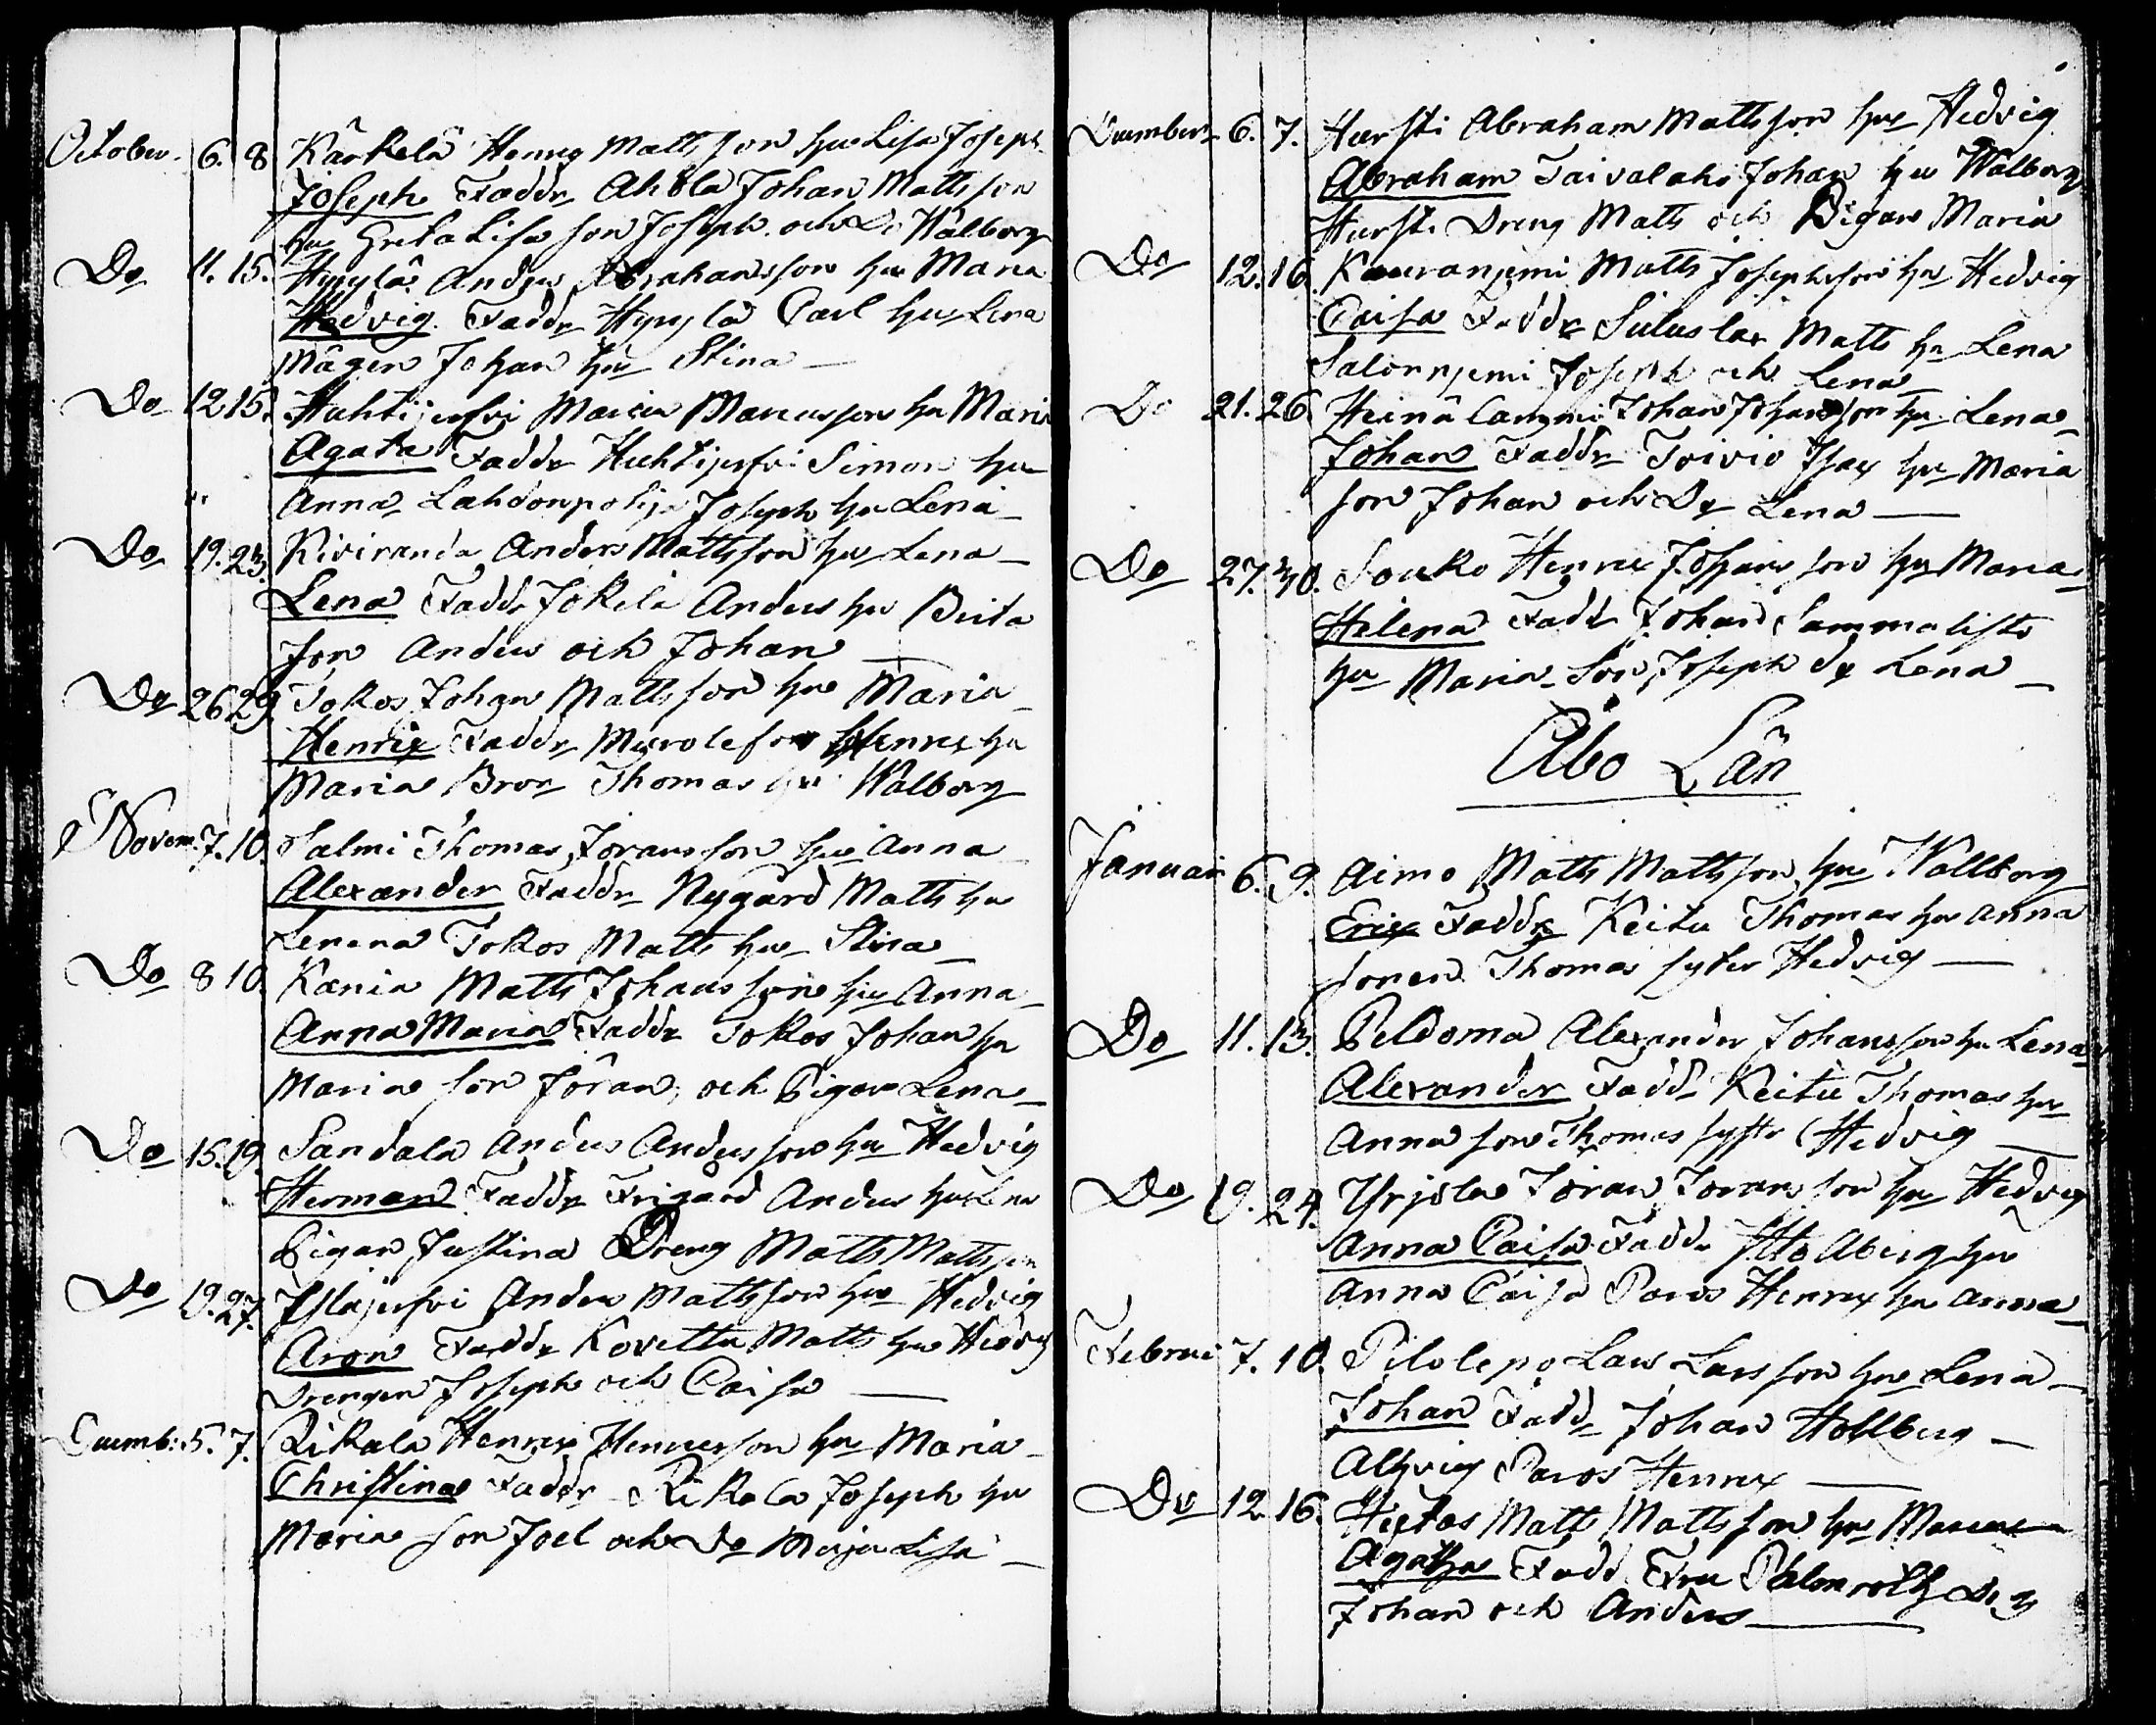 October. 6. 8 Kärkelä Henric Mattsson hu Lisa Joseph
Joseph Faddr Ahola Johan Mattsson
hu Greta Lisa son Joseph och Do Walborg
Do 11. 15. Hyrylä Anders Abrahamsson hu Maria
Hedvig Faddr Hyrylä Carl hu Lena
Mågen Johan hu Stina
Do 12 15. Huhtijerfvi Marcus Marcusson hu Maria
Agata Faddr Huhtijerfvi Simon hu
Anna Lahdonpohja Joseph hu Lena
Do 19. 23. Kiviranda Anders Mattsson hu Lena
Lena Faddr Jokela Anders hu Brita
son Anders och Johan
Do 26 29. Tokos Johan Mattsson hu Maria
Henrix Faddr Henrix hu
Maria Bror Thomas hu Walborg
Novem. 7. 10. Salmi Thomas Joransson hu Anna
Alexander Faddr Nygård Matts hu
Tokos Matts hu Stina
Do 8 10. Kænia Matts Johansson hu Anna
Anna Maria Faddr Tokos Johan hu
Maria son Jöran, och Pigan Lena
Do 15. 19. Sandala Anders Andersson hu Hedvig
Herman Faddr Frigård Anders hu Lena
Pigan Justina Dreng Matts Mattsson
Do 19. 27. Isojerfvi Anders Mattsson hu Hedvig
Aron Faddr Kovetta Matts hu Hedvig
Drengen Joseph och Caisa
Decemb: 5. 7. Rikala Henrix Henrixson hu Maria
Christina Faddr Rikala Joseph hu
Maria son Joel och Do Maja Lisa
December 6. 7. Hursti Abraham Mattsson hu Hedvig
Abraham Taivalaho Johan hu Walborg
Hursti Dreng Matts och Pigan Maria
Do 12. 16. Kauranjemi Matts Josephsson hu Hedvig
Caisa Faddr Matts hu Lena
Salonnjemi Joseph och Lena
Do 21. 26. Heinälammi Johan Johansson hu Lena
Johan Faddr Toivio Isax hu Maria
son Johan och Dr Lena
Do 27. 30. Souko Henrix Johansson hu Maria
Helena Faddr Johan Sammalisto
hu Maria Son Joseph dr Lena
Åbo Län
Januari 6. 9. Aimo Matts Mattsson hu Wallborg
Erix Faddr Keitu Thomas hu Anna
sonen Thomas syster Hedvig
Do 11. 13. Peldoma Alexander Johansson hu Lena
Alexander Fadd Keitu Thomas hu
Anna son Thomas systr Hedvig
Do 19. 24. Yrjola Joran Joransson hu Hedvig
Anna Caisa Faddr hu
Anna Caisa Paros Henrix hu Anna
Februri 7. 10. Pitolepo Lars Larsson hu Lena
Johan Faddr Johan Hollberg
Paros Henrix
Do 12. 16. Matts Mattsson hu
Agatha Fadd Fru Palmroth
Johan och Anders